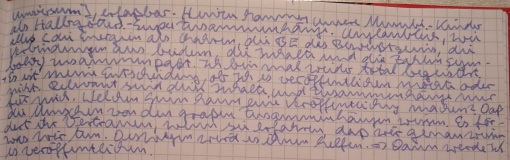 Universum], erfassbar. Hierin kommen unsere Mumbi-Kinder
als Halbgötter-Enge Zusammenhänge. Unglaublich, wie
alles (die Energie als Zahlen, die BE des Bewusstseins, die
Verbindungen aus beidem die Inhalte und die Zahlen Sym-
bolik) zusammen passt. Ich bin mal wieder total begeistert.
Es ist meine Entscheidung, ob ich es veröffentlichen möchte oder
nicht. Relevant sind die Inhalte und Zusammenhänge nur
für mich. Welchen Sinn kann eine Veröffentlichung machen? Daß
die Menschen von den großen Zusammenhängen wissen. Es för-
dert ihr Vertrauen, wenn sie erfahren, daß wir genau wissen
was wir tun. Deswegen wird es ihnen helfen. => Dann werde ich
es veröffentlichen.